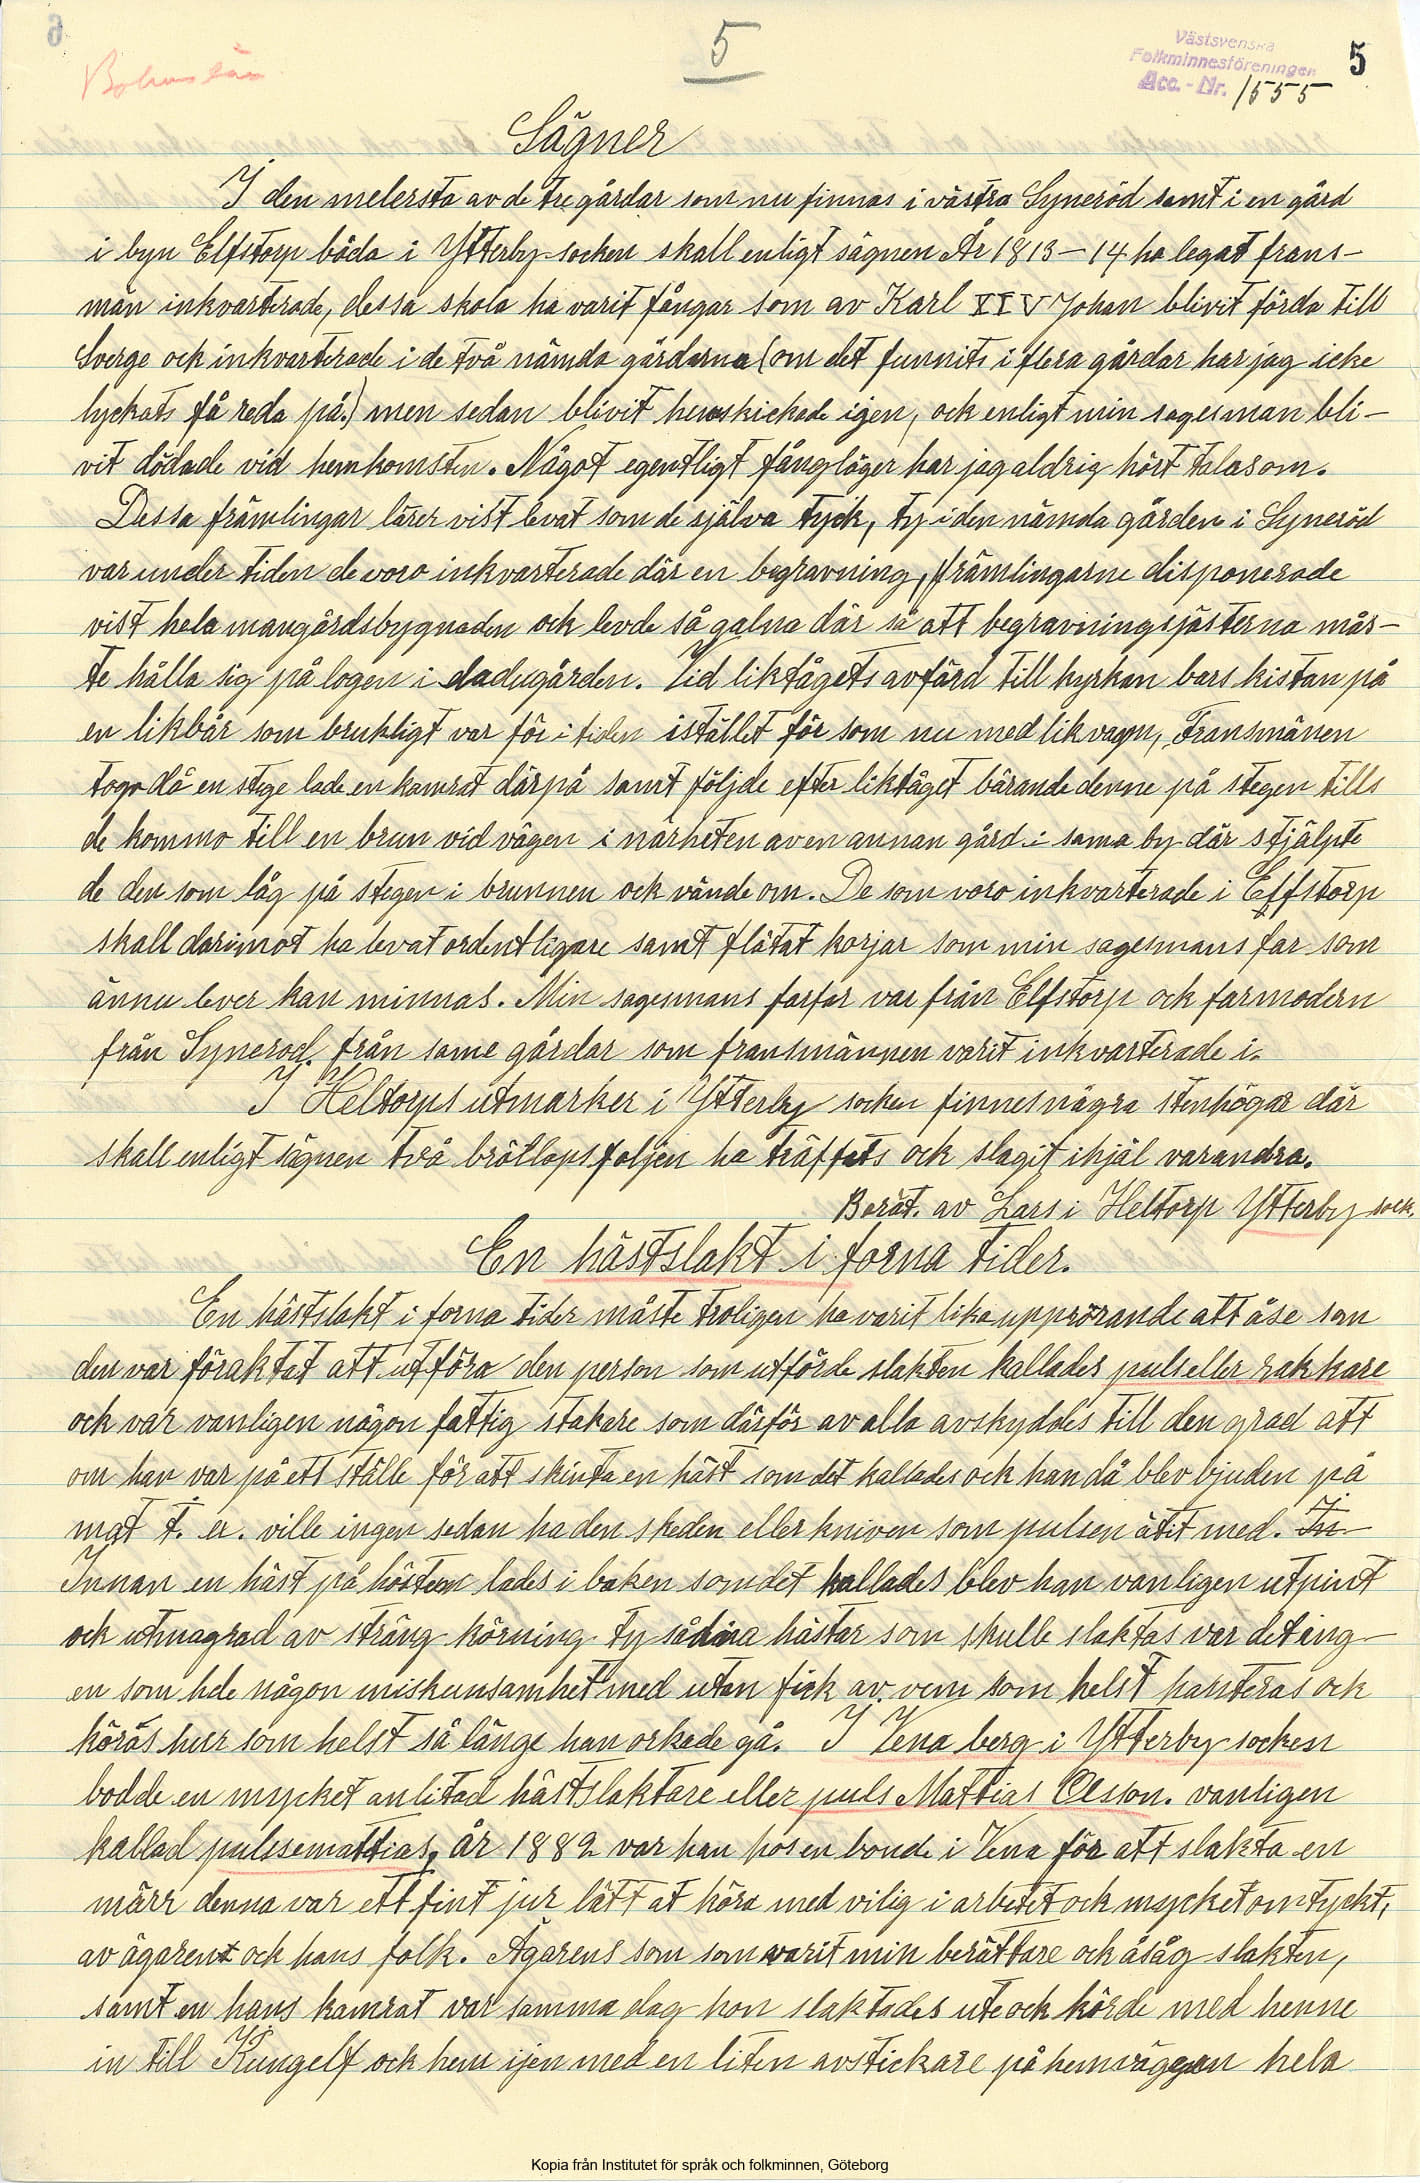 Bohuslän
5
Västsvenska
Folkminnesföreningen
Acc. - Nr. 1555
5
Sägner
I den melersta av de tre gårdar som nu finnas i västra Syneröd samt i en gård
i byn Elfstorp båda i Ytterby socken skall enligt sägnen År 1813–14 ha legat frans-
män inkvarterade, dessa skola ha varit fångar som av Karl XIV Johan blivit förda till
Sverge ock inkvarterade i de två nämda gårdarna (om det funnits i flera gårdar har jag icke
lyckats få reda på.) men sedan blivit hemskickade igen, ock enligt min sagesman bli-
vit dödade vid hemkomsten. Något egentligt fångläger har jag aldrig hört talas om.
Dessa främlingar lärer vist levat som de själva tyck, ty i den nämda gården i Syneröd
var under tiden de voro inkvarterade där en begravning, främlingarne disponerade
vist hela mangårdsbygnaden ock levde så galna där så att begravningsjästerna mås-
te hålla sig på logen i ladugården. Vid liktågets avfärd till kyrkan bars kistan på
en likbår som brukligt var för i tiden istället för som nu med likvagn, Fransmänen
togo då en stege lade en kamrat därpå samt följde efter liktåget bärande denne på stegen tills
de kommo till en brun vid vägen i närheten av en annan gård i sama by där stjälpte
de den som låg på stegen i brunnen ock vände om. De som voro inkvarterade i Elfstorp
skall darimot ha levat ordentligare samt flätat korjar som min sagesmans far som
ännu lever kan minnas. Min sagesmans farfar var från Elfstorp ock farmodern
från Synerod, från same gårdar som fransmännen varit inkvarterade i.
I Heltorps utmarker i Ytterby socken finnes några stenhögar där
skall enligt sägnen två bröllopsfoljen ha träffats ock slagit ihjäl varandra.
Berät. av Lars i Heltorp Ytterby sock.
En hästslakt i forna tider.
En hästslakt i forna tider måste troligen ha varit lika upprörande att åse som
den var föraktat att utföra den person som utförde slakten kallades puls eller rakkare
ock var vanligen någon fattig stakare som därför av alla avskyddes till den grad att
om han var på ett ställe för att skinta en häst som det kallades ock han då blev bjuden på
mat t. ex. ville ingen sedan ha den skeden eller kniven som pulsen ätit med. In
Innan en häst på hösten lades i baken som det kallades blev han vanligen utpint
ock utmagrad av sträng körning ty sådana hästar som skulle slaktas var det ing-
en som hde någon miskunsamhet med utan fick av vem som helst hanteras ock
köras hur som helst så länge han orkade gå. I Vena berg i Ytterby socken
bodde en mycket anlitad hästslaktare eller puls Mattias Olsson. vanligen
kallad pulssemattias, år 1882 var han hos en bonde i Vena för att slakta en
märr denna var ett fint jur lätt at köra med vilig i arbetet ock mycket omtyckt,
av ägarent ock hans folk. Ägarens som som varit min berättare ock åsåg slakten,
samt en hans kamrat var samma dag hon slaktades ute ock körde med henne
in till Kungelf ock hem ijen med en liten avstickare på hemvägen hela
Kopia från Institutet för språk och folkminnen, Göteborg